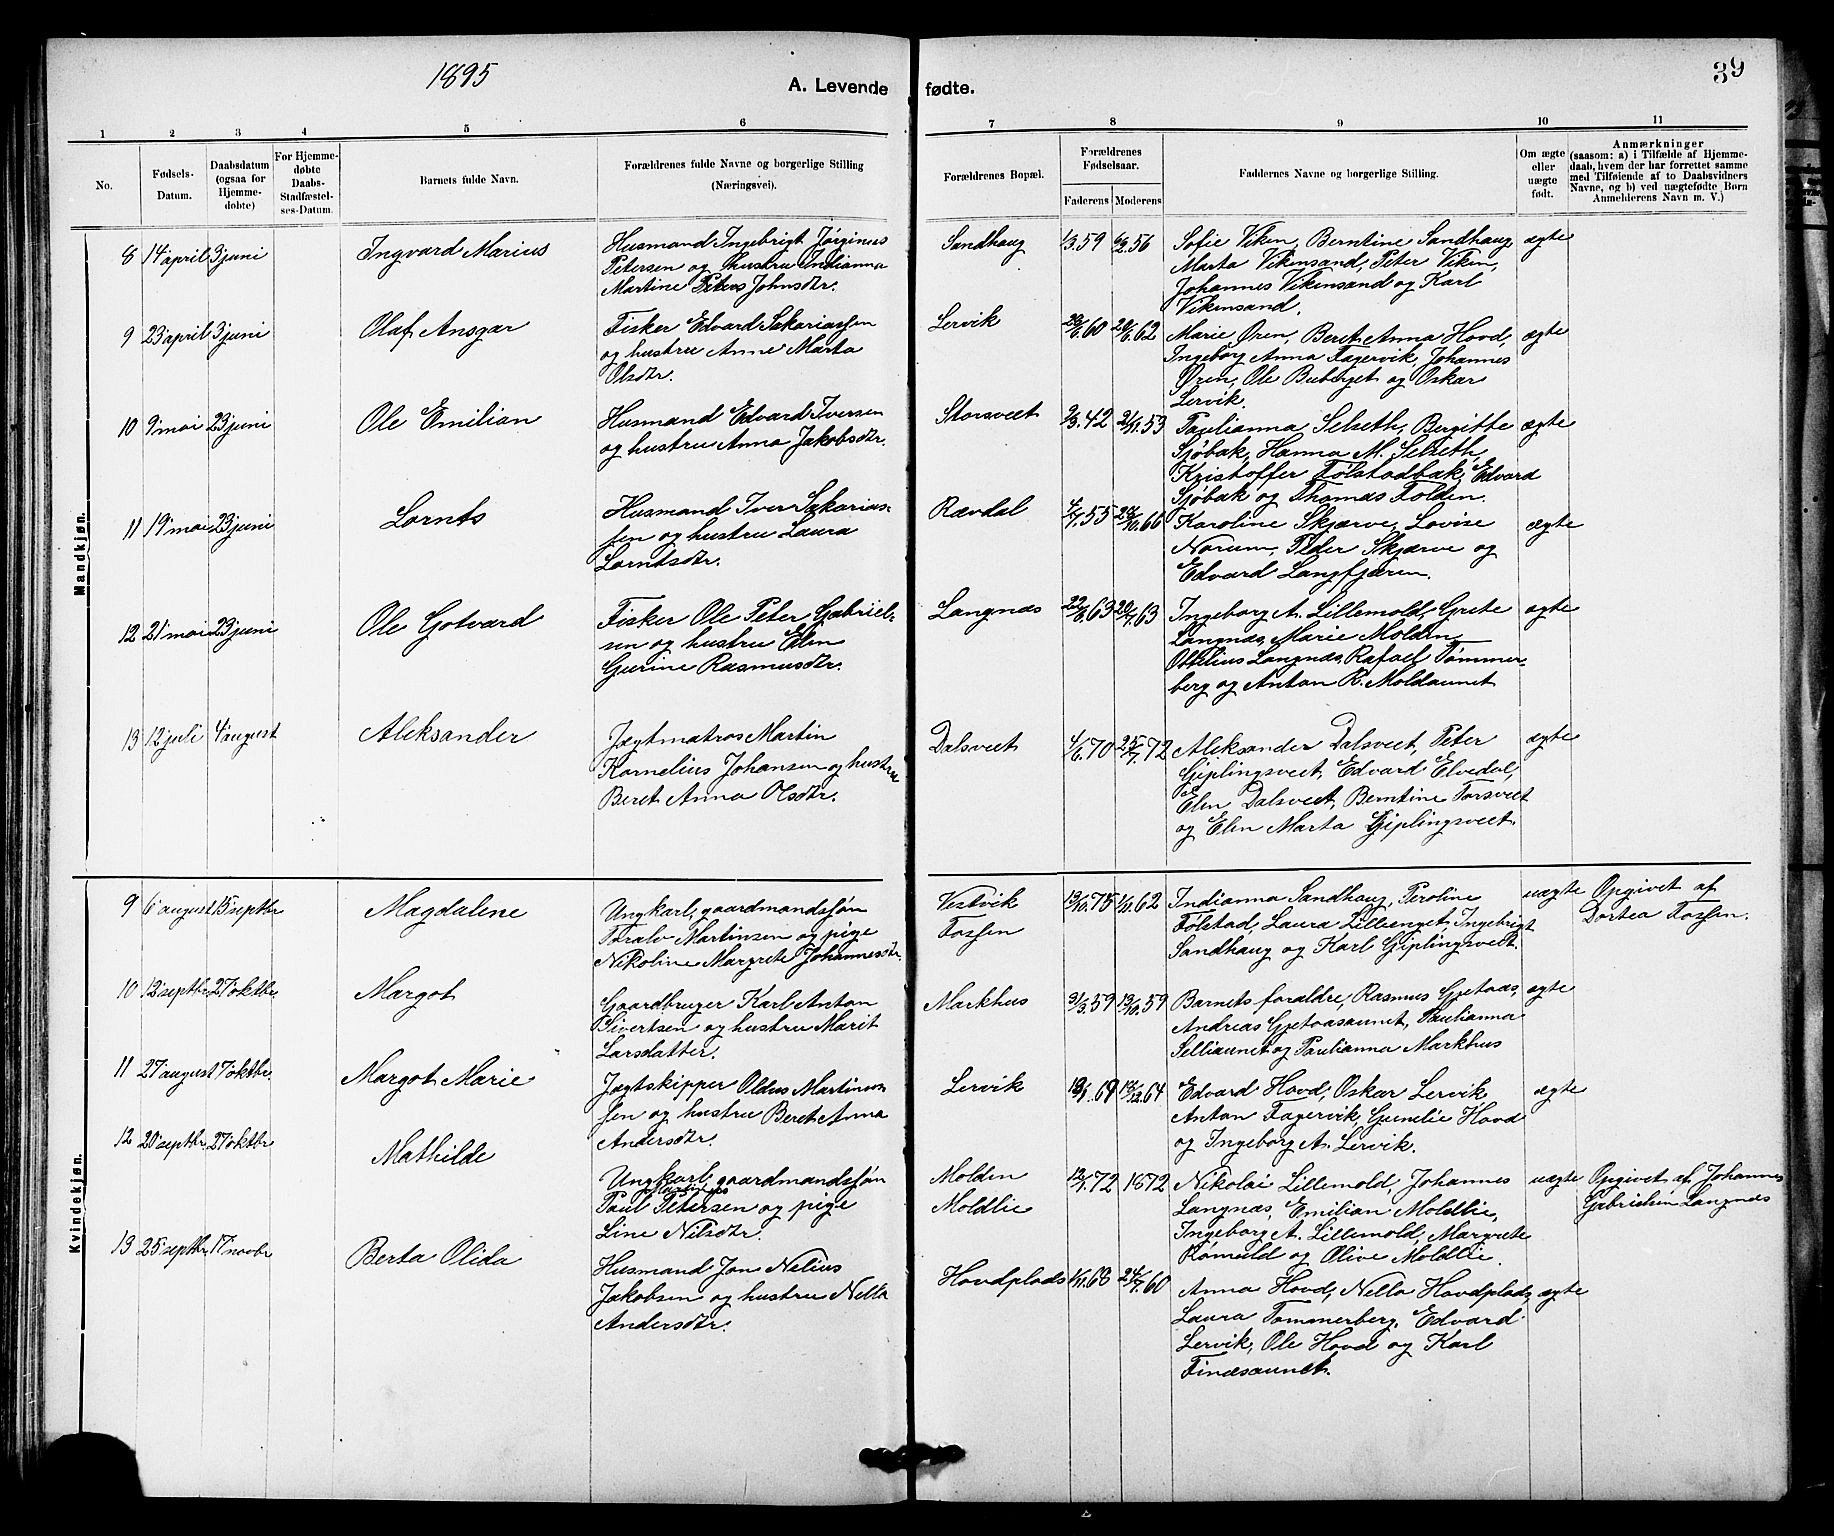 1895
A. Levende fødte.
39
1 2 3 4 5 6 7 8 9 10 11
No.
Fødsels-Datum.
Daabsdatum (ogsaa for Hjemmedøbte)
For Hjemmedøbte Daabs-Stadfæstelses-Datum.
Barnets fulde Navn.
Forældrenes fulde Navne og borgerlige Stilling (Næringsvei).
Forældrenes Bopæl.
Forældrenes Fødselsaar.
Faderens Moderens
Faddernes Navne og borgerlige Stilling.
Om ægte eller uægte født.
Anmærkninger
(saasom: a) i Tilfælde af Hjemmedaab, hvem der har forrettet samme med Tilføiende af to Daabsvidners Navne, og b) ved uægtefødte Børn Anmelderens Navn m. V.)
Mandkjøn.
8 14 april 3 juni Ingvard Marius
Husmand Ingebrigt Jørginus
Petersen og hustru Indianna
Martine Johnsdtr.
Sandhaug 1/3.59 6/2.56
Sofie Viken, Berntine Sandhaug
Marta Vikensand, Peter Viken,
Johannes Vikensand og Karl
Vikensand.
ægte
9 23 april 3 juni Olaf Ansgar
Fisker Edvard Sakariassen
og hustru Anne Marta
Olsdtr.
Lervik
Marie Øren, Beret Anna Hovd,
Ingeborg Anna Fagervik, Johannes
Øren, Ole Buberget og Oskar
Lervik.
ægte
10 9 mai 23 juni Ole Emilian
Husmand Edvard Iversen
og hustru Anna Jakobsdtr.
Storsveet
Paulianna Selseth, Bergitte
Sjøbak, Hanna M. Selseth,
Kristoffer Følstadbak, Edvard
Sjøbak og Thomas Folden.
ægte
11 19 mai 23 juni Lornts
Husmand Iver Sakarias-
sen og hustru Laura
Lorntsdtr.
Rævdal
Karoline Skjærve, Lovise
Norum, Peder Skjærve og
Edvard Langfjæren.
ægte
12 21 mai 23 juni Ole Gotvard
Fisker Ole Peter Gabriel-
sen og hustru Elen
Gurine Rasmusdtr.
Langnæs
Ingeborg A. Lillemold, Grete
Langnæs, Marie Molden
Ottilius Langnæs, Rafael Tømmer-
berg og Anton R. Moldaunet
ægte
13 12 juli 4 august Aleksander
Jægtmatros Martin
Kornelius Johansen og hustru
Beret Anna Olsdtr.
Dalsveet
Aleksander Dalsveet, Peter
Giplingsveet, Edvard Elvedal,
Elen Dalsveet, Berntine Torsveet
og Elen Marta Giplingsveet.
ægte
Kvindekjøn.
9 6 august 15 septbr Magdalene
Ungkarl, gaardmandssøn
Toralv Martinsen og pige
Nikoline Margrete Johannesdtr.
Vestvik
Fossen
Indianna Sandhaug, Peroline
Følstad, Laura Lillenget, Ingebrigt
Sandhaug og Karl Giplingsveet.
uægte
Opgivet af
Dortea Fossen.
10 12 septbr. 27 oktbr. Margot
Gaardbruger Karl Anton
Sivertsen og hustru Marit
Larsdatter.
Markhus 31/3.59 13/10.59
Barnets forældre, Rasmus Gjetaas,
Andreas Gjetaasaunet, Paulianna
Selliaunet og Paulianna Markhus
ægte
11 27 august 7 oktbr. Margot Marie
Jægtskipper Oldus Martinus-
sen og hustru Beret Anna
Andersdtr.
Lervik
Edvard Hovd, Oskar Lervik
Anton Fagervik, Gunelie Hovd
og Ingeborg A. Lervik.
ægte
12 20 septbr. 27 oktbr Mathilde
Ungkarl, gaardmandssøn
Paul Petersen og pige
Line Nilsdtr.
Molden
Moldlie
12/1.72 1872
Nikolai Lillemold, Johannes
Langnæs, Emilian Moldlie,
Ingeborg A. Lillemold, Margrete
Rømuld og Olive Moldlie.
uægte
Opgivet af Johannes
Gabrielsen Langnæs
13 25 septbr. 17 novbr Berta Olida
Husmand Jon Nelius
Jakobsen og hustru Nella
Andersdtr.
Hovdplads 1/11.68 24/7.60
Anna Hovd, Nella Hovdplads,
Laura Tømmerberg, Edvard
Lervik, Ole Hovd og Karl
Finæsaunet.
ægte